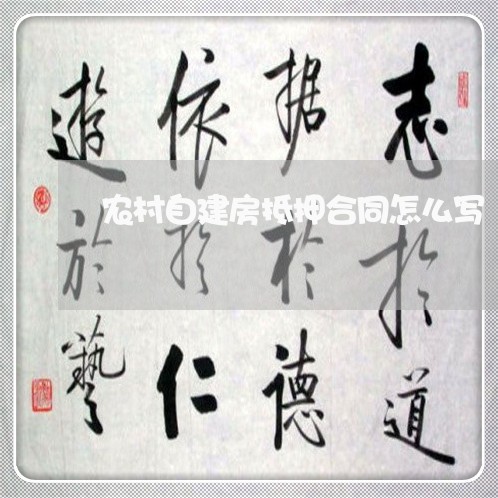 志於道
据於德
依於仁
遊於藝
农村自建房抵押合同怎么写